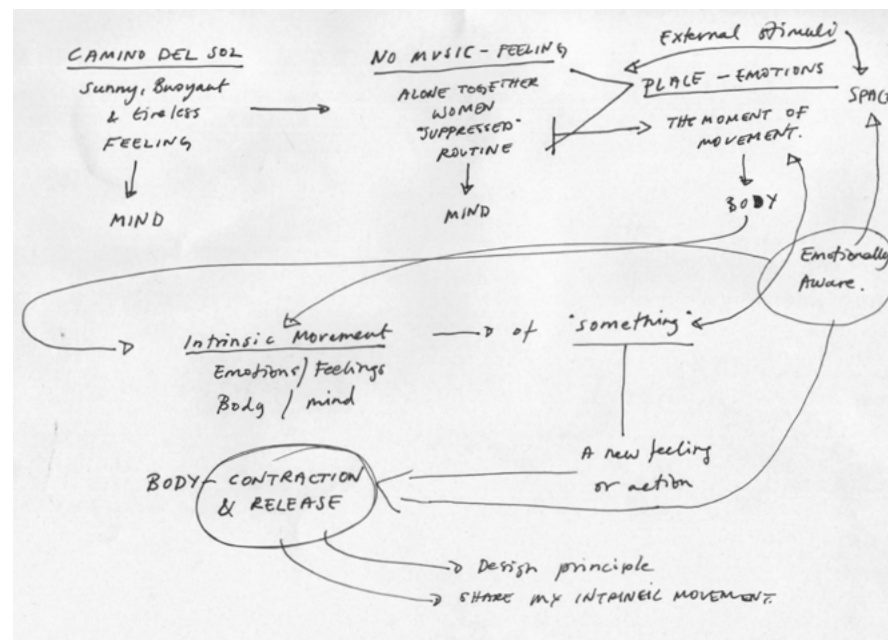 CAMINO DEL SOL
Sunny, Buoyant
& tireless
FEELING
MIND
NO MUSIC - FEELING
ALONE TOGETHER
WOMEN
"SUPPRESSED"
ROUTINE
MIND
External Stimuli
PLACE - EMOTIONS
SPACE
THE MOMENT OF
MOVEMENT.
BODY
Emotionally
Aware.
Intrinsic Movement
Emotions / Feelings
Body / mind
of
"something"
A new feeling
or action
BODY - CONTRACTION
& RELEASE
Design principle
SHARE MY INTRINSIC MOVEMENT.